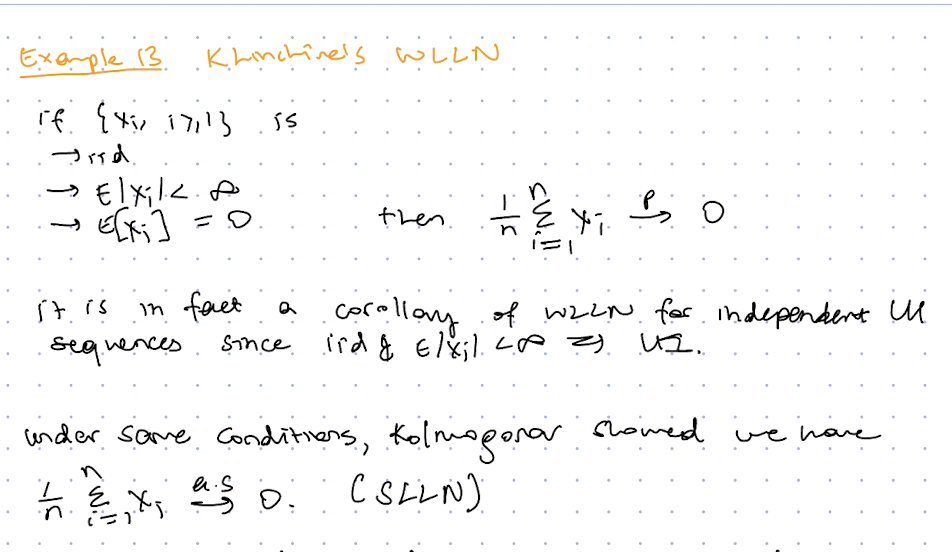 Example 13 Khinchine's WLLN
if {Xi, i≥1} is
→ iid
→ E|Xi| < ∞
→ E[Xi] = 0. then 1/n Σ_{i=1}^{n} Xi →^P 0
it is in fact a corollary of WLLN for independent UI
sequences since iid & E|Xi| < ∞ ⇒ UI.
under same conditions, Kolmogorov showed we have
1/n Σ_{i=1}^{n} Xi →^{a.s} 0. (SLLN)